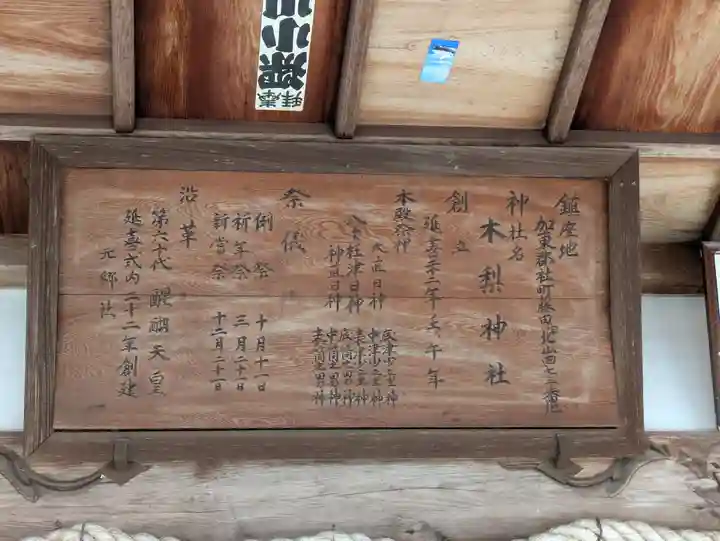 鎮座地
加東郡社町藤田北山
神社名
木梨神社
創立
延喜二十二年壬午年
本殿祭神
大直日神
八十枉津日神
神直日神
底津少童神
中津少童神
表津少童神
底筒之男神
中筒之男神
表筒之男神
祭儀
例祭 十月十一日
祈年祭 三月二十一日
新嘗祭 十二月二十一日
沿革
第六十代 醍醐天皇
延喜式内二十二年創建
元郷社